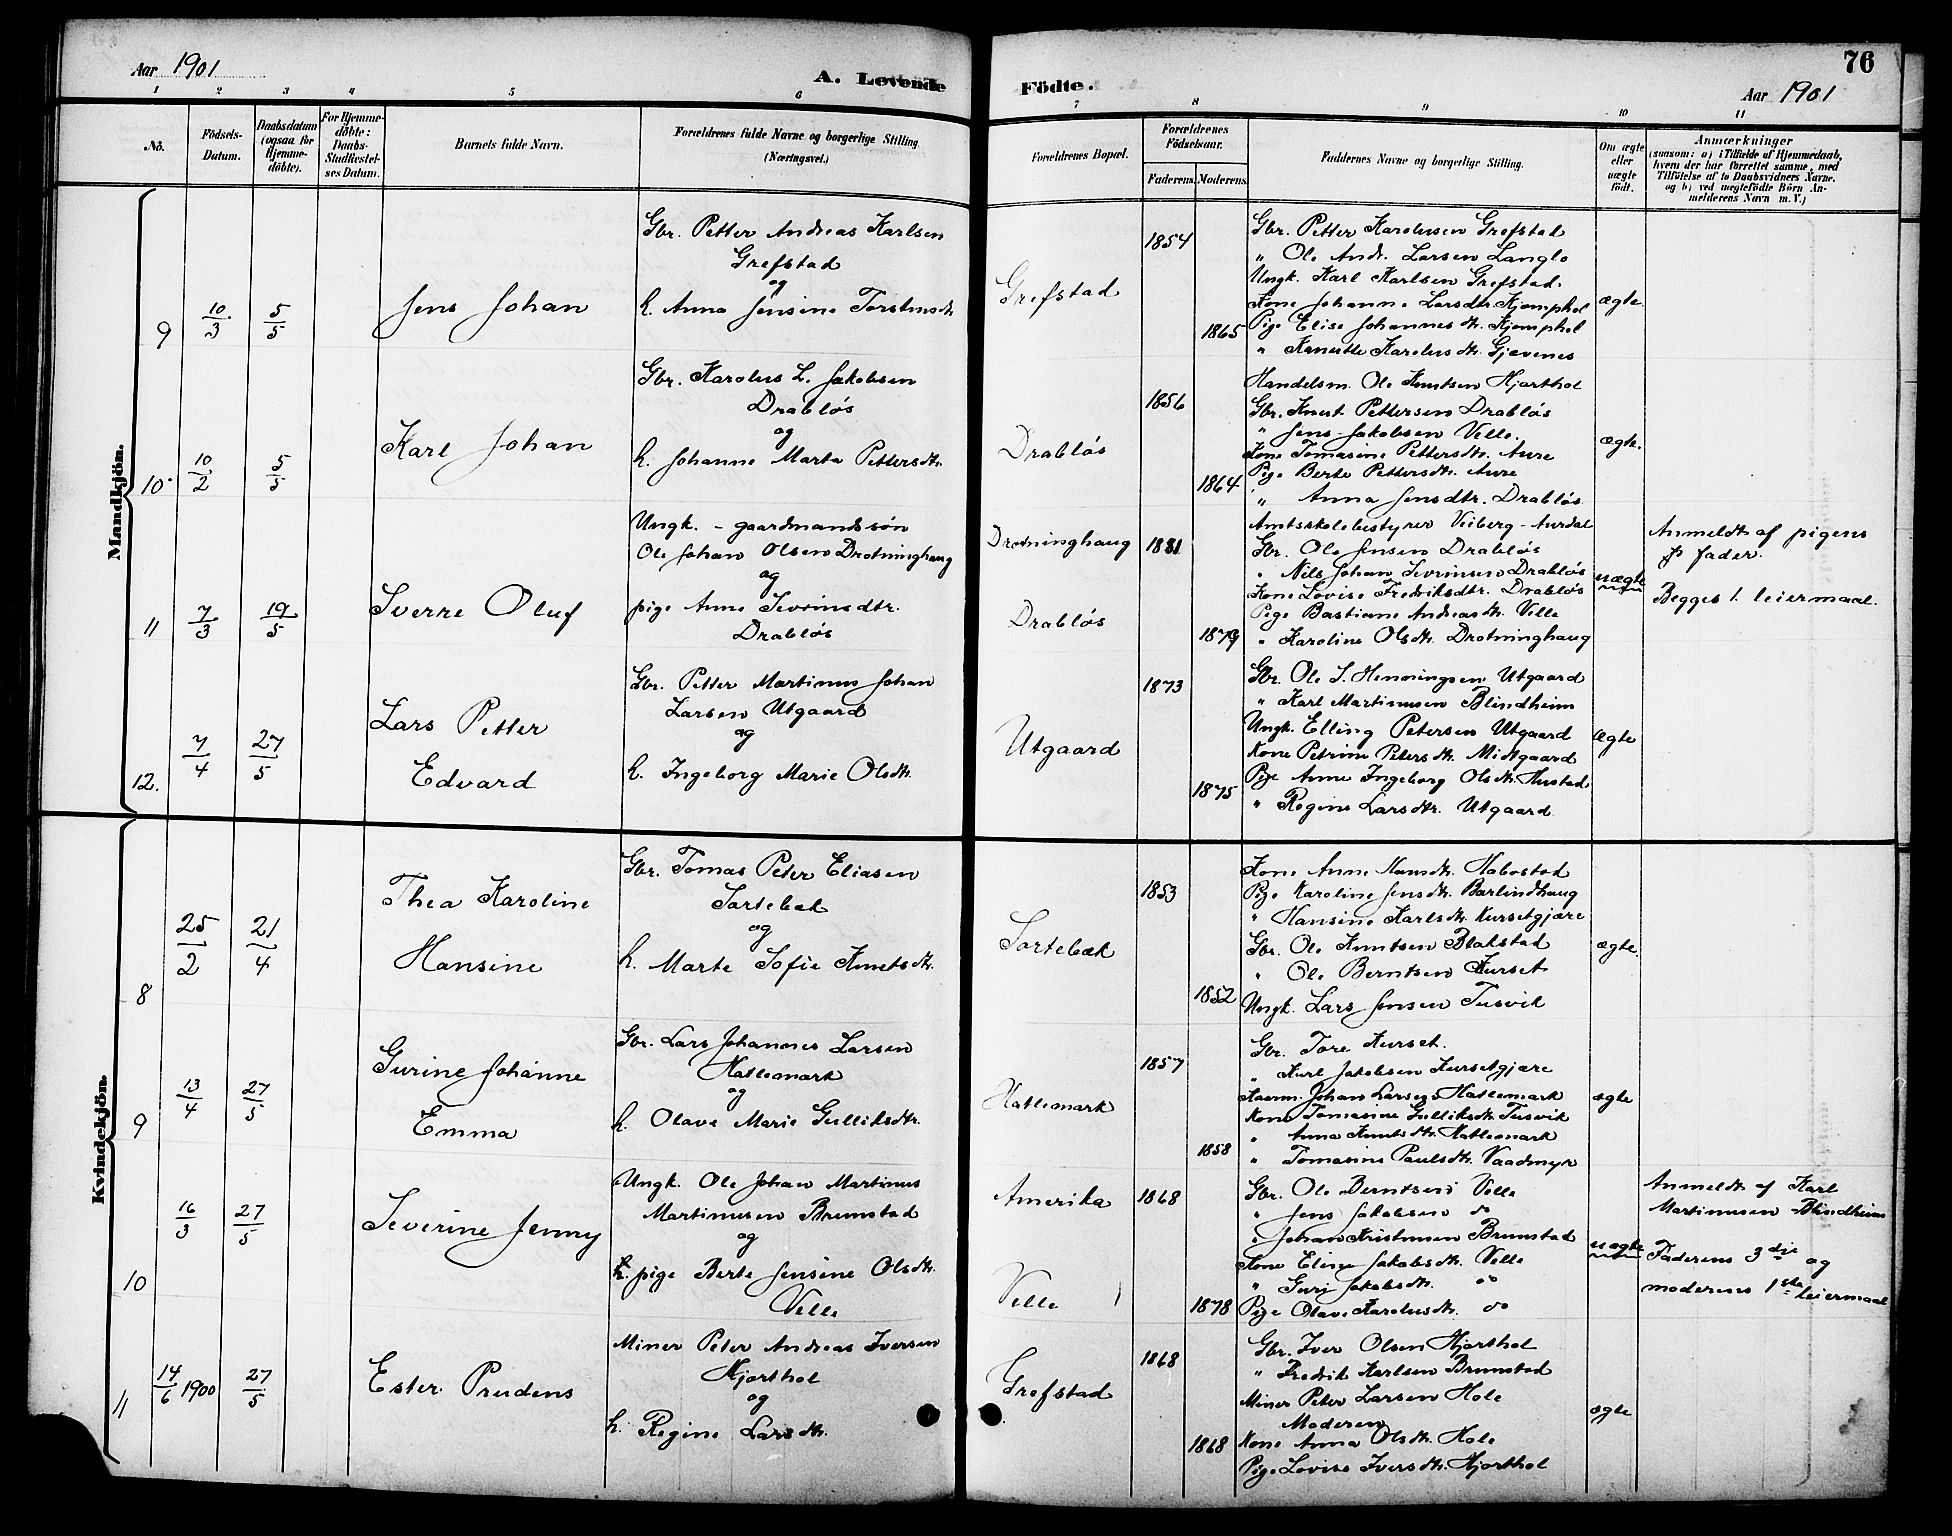 Aar 1901
A. Levende
Födte.
76
Aar 1901
1 2 3 4 5 6 7 8 9 10 11
No.
Födsels-Datum.
Daabsdatum (ogsaa for Hjemmedöbte).
For Hjemmedöbte: Daabs-Stadfæstelses Datum.
Barnets fulde Navn.
Forældrenes fulde Navne og borgerlige Stilling (Næringsvei.)
Forældrenes Bopæl.
Forældrenes Födselsaar.
Faderens. Moderens.
Faddernes Navne og borgerlige Stilling.
Om ægte eller uægte födt.
Anmærkninger
(saasom: a) i Tilfælde af Hjemmedaab, hvem der har forrettet samme, med Tilföielse af to Daabsvidners Navne. og b) ved uægtefödte Börn Anmelderens Navn m. V.)
Mandkjön.
9
10/3
5/5
Jens Johan
Gbr. Petter Andreas Karlsen
Grefstad
og
h. Anna Jensine Torstensdtr.
Grefstad
1854
1865
Gbr. Petter Karolusen Grefstad
" Ole Andr. Larsen Langlo
Ungk. Karl Karlsen Grefstad.
Kone Johanne Larsdtr. Kjemphol
Pige Elise Johannesdtr. Kjemphol
" Karolusdtr. Gjævenes
ægte.
10
10/2
5/5
Karl Johan
Gbr. Karolus L. Jakobsen
Drabløs
og
h. Johanne Marta Pettersdtr.
Drabløs
1856
1864
Handelsm. Ole Knutsen Hjorthol
Gbr. Knut Pettersen Drabløs
" Jens Jakobsen Velle.
Kone Tomasine Pettersdtr. Aure
Pige Berte Pettersdtr. Aure
" Anna Jensdtr. Drabløs
ægte.
11
7/3
19/5
Sverre Oluf
Ungk. - gaardmandssøn
Ole Johan Olsen Drotninghaug
og
pige Anne Severinsdtr.
Drabløs
Drotninghaug
Drabløs
1881
1879
Amtsskolebestyrer Viiberg - Aurdal
Gbr. Ole Jensen Drabløs
" Nils Johan Severinsen Drabløs
Kone Lovise Fredriksdtr. Drabløs
Pige Bastiane Andreasdtr. Velle
" Karoline Olsdtr. Drotninghaug
uægte
Anmeldt af pigens
fader.
Begges 1. leiermaal.
12.
7/4
27/5
Lars Petter
Edvard
Gbr. Petter Martinus Johan
Larsen Utgaard
og
h. Ingeborg Marie Olsdtr.
Utgaard
1873
1875
Gbr. Ole S. Henningsen Utgaard
" Karl Martinusen Blindheim
Ungk. Elling Petersen Utgaard
Kone Petrine Petersdtr. Midtgaard
Pige Anne Ingeborg Olsdtr. Hustad.
" Regine Larsdtr. Utgaard
Ægte
Kvindekjön.
8
25/2
21/4
Thea Karoline
Hansine
Gbr. Tomas Peter Eliasen
Sortebæk
og
h. Marte Sofie Knutsdtr.
Sortebæk
1853
1852
Kone Anne Hansdtr. Habostad
Pige Karoline Jensdtr. Barlindhaug
" Hansine Karlsdtr. Kursetgjære
Gbr. Ole Knutsen Blakstad
" Ole Berntsen Kurset
Ungk. Lars Jensen Tusvik
ægte.
9
13/4
27/5
Gurine Johanne
Emma
Gbr. Lars Johannes Larsen
Hatlemark
og
h. Olave Marie Gulliksdtr.
Hatlemark
1857
1858
Gbr. Tore Kurset.
" Karl Jakobsen Kursetgjære
Kaarm. Johan Larsen Hatlemark
Kone Tomasine Gulliksdtr. Tusvik
" Anna Knutsdtr. Hatlemark
" Tomasine Paulsdtr. Vaadmyr
ægte
10
16/3
27/5
Severine Jenny
Ungk. Ole Johan Martinus
Martinusen Brunstad
og
pige Berte Jensine Olsdtr.
Velle
Amerika
Velle
1868
1878
Gbr. Ole Berntsen Velle
" Jens Jakobsen do
" Johan Kristensen Brunstad
Kone Eline Jakobsdtr. Velle
" Guri Jakobsdtr. do
Pige Olave Karolusdtr. do
uægte
Anmeldt af Karl
Martinusen Blindheim
Faderens 3die og
moderens 1ste leiermaal
11
14/6 1900
27/5
Ester Prudens
Miner Peter Andreas Iversen
Hjorthol
og
h. Regine Larsdtr.
Grefstad
1868
1868
Gbr. Iver Olsen Hjorthol
" Fredrik Karlsen Brunstad
Miner Peter Larsen Hole
Moderen
Kone Anna Olsdtr. Hole
Pige Lovise Iversdtr. Hjorthol
ægte